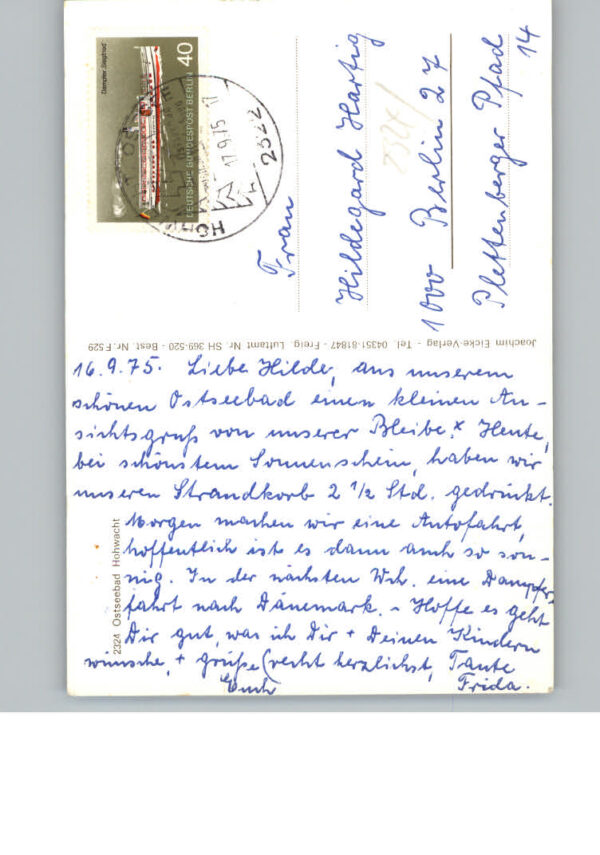 Dampfer "Siegfried"
40
DEUTSCHE BUNDESPOST BERLIN
17.9.75-17
2322
Frau
Hildegard Hartig
1000 Berlin 27
Plettenberger Pfad
14
Joachim Eicke-Verlag - Tel. 04351-81847 - Freig. Luftamt Nr. SH 369-520 - Best. Nr. F 529
2324 Ostseebad Hohwacht
16.9.75. Liebe Hilde, aus unserem
schönen Ostseebad einen kleinen An-
sichtsgruß von unserer Bleibe.x Heute,
bei schönstem Sonnenschein, haben wir
unseren Strandkorb 2 1/2 Std. gedrückt.
Morgen machen wir eine Autofahrt,
hoffentlich ist es dann auch so son-
nig. In der nächsten Wch. eine Dampfer-
fahrt nach Dänemark. - Hoffe es geht
Dir gut, was ich Dir + Deinen Kindern
wünsche, + grüße (recht herzlichst, Tante
Euch Frida.